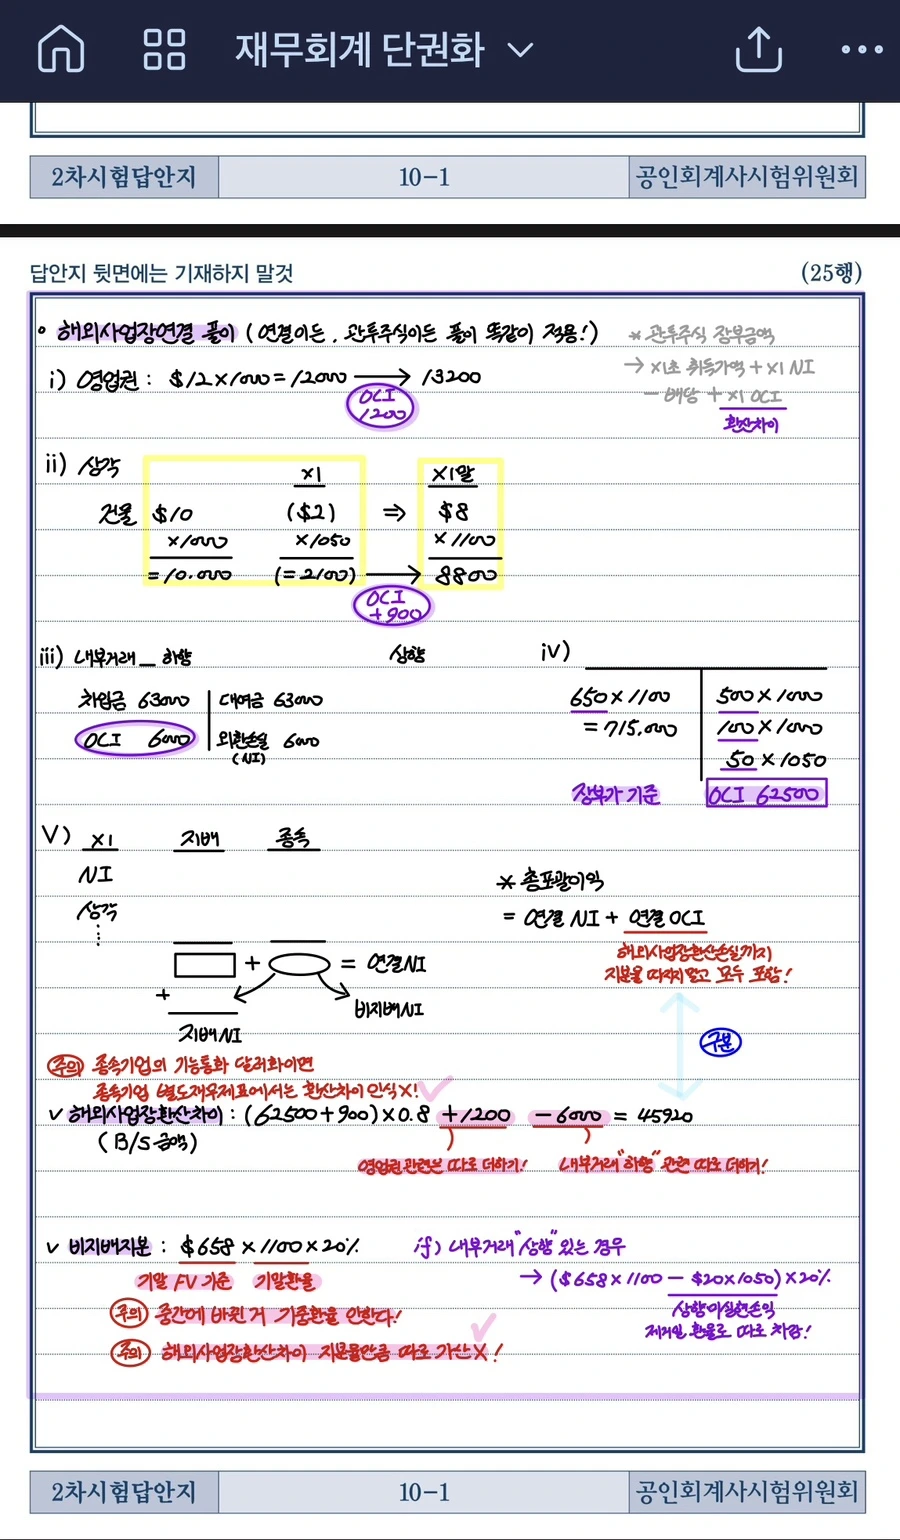 재무회계 단권화
2차시험답안지 10-1 공인회계사시험위원회
답안지 뒷면에는 기재하지 말것 (25행)
∘ 해외사업장연결 풀이 (연결이든, 관투주식이든 풀이 똑같이 적용!)
* 관투주식 장부금액
→ X1초 취득가액 + X1 NI
- 배당 + X1 OCI
환산차이
i) 영업권 : $12×1000 = 12000 → 13200
OCI
1200
ii) 상각
X1 X1말
건물 $10 ($2) ⇒ $8
×1000 ×1050 ×1100
=10.000 (=2100) → 8800
OCI
+900
iii) 내부거래_하향 상향
차입금 63000 대여금 63000
OCI 6000 외환손실 6000
(NI)
iv)
650×1100 500×1000
=715.000 100×1000
50×1050
장부가 기준 OCI 62500
V) X1 지배 종속
NI
상각
⋮
+ = 연결NI
+
비지배NI
지배NI
* 총포괄이익
= 연결 NI + 연결 OCI
해외사업장환산손실까지
지분율 따지지말고 모두 포함!
구분
주의 종속기업의 기능통화 달러화이면
종속기업 별도재무제표에서는 환산차이 인식X!
✓ 해외사업장환산차이 : (62500+900)×0.8 +1200 -6000 = 45920
(B/S 금액)
영업권관련은 따로 더하기! 내부거래"하향" 관련 따로 더하기!
✓ 비지배지분 : $658 × 1100 × 20%
기말 FV 기준 기말환율
주의 중간에 바뀐 거 기중환율 안한다!
주의 해외사업장환산차이 지분율만큼 따로 가산X!
if) 내부거래"상향"있는 경우
→ ($658×1100 - $20×1050)×20%
상향미실현손익
제거일 환율로 따로 차감!
2차시험답안지 10-1 공인회계사시험위원회